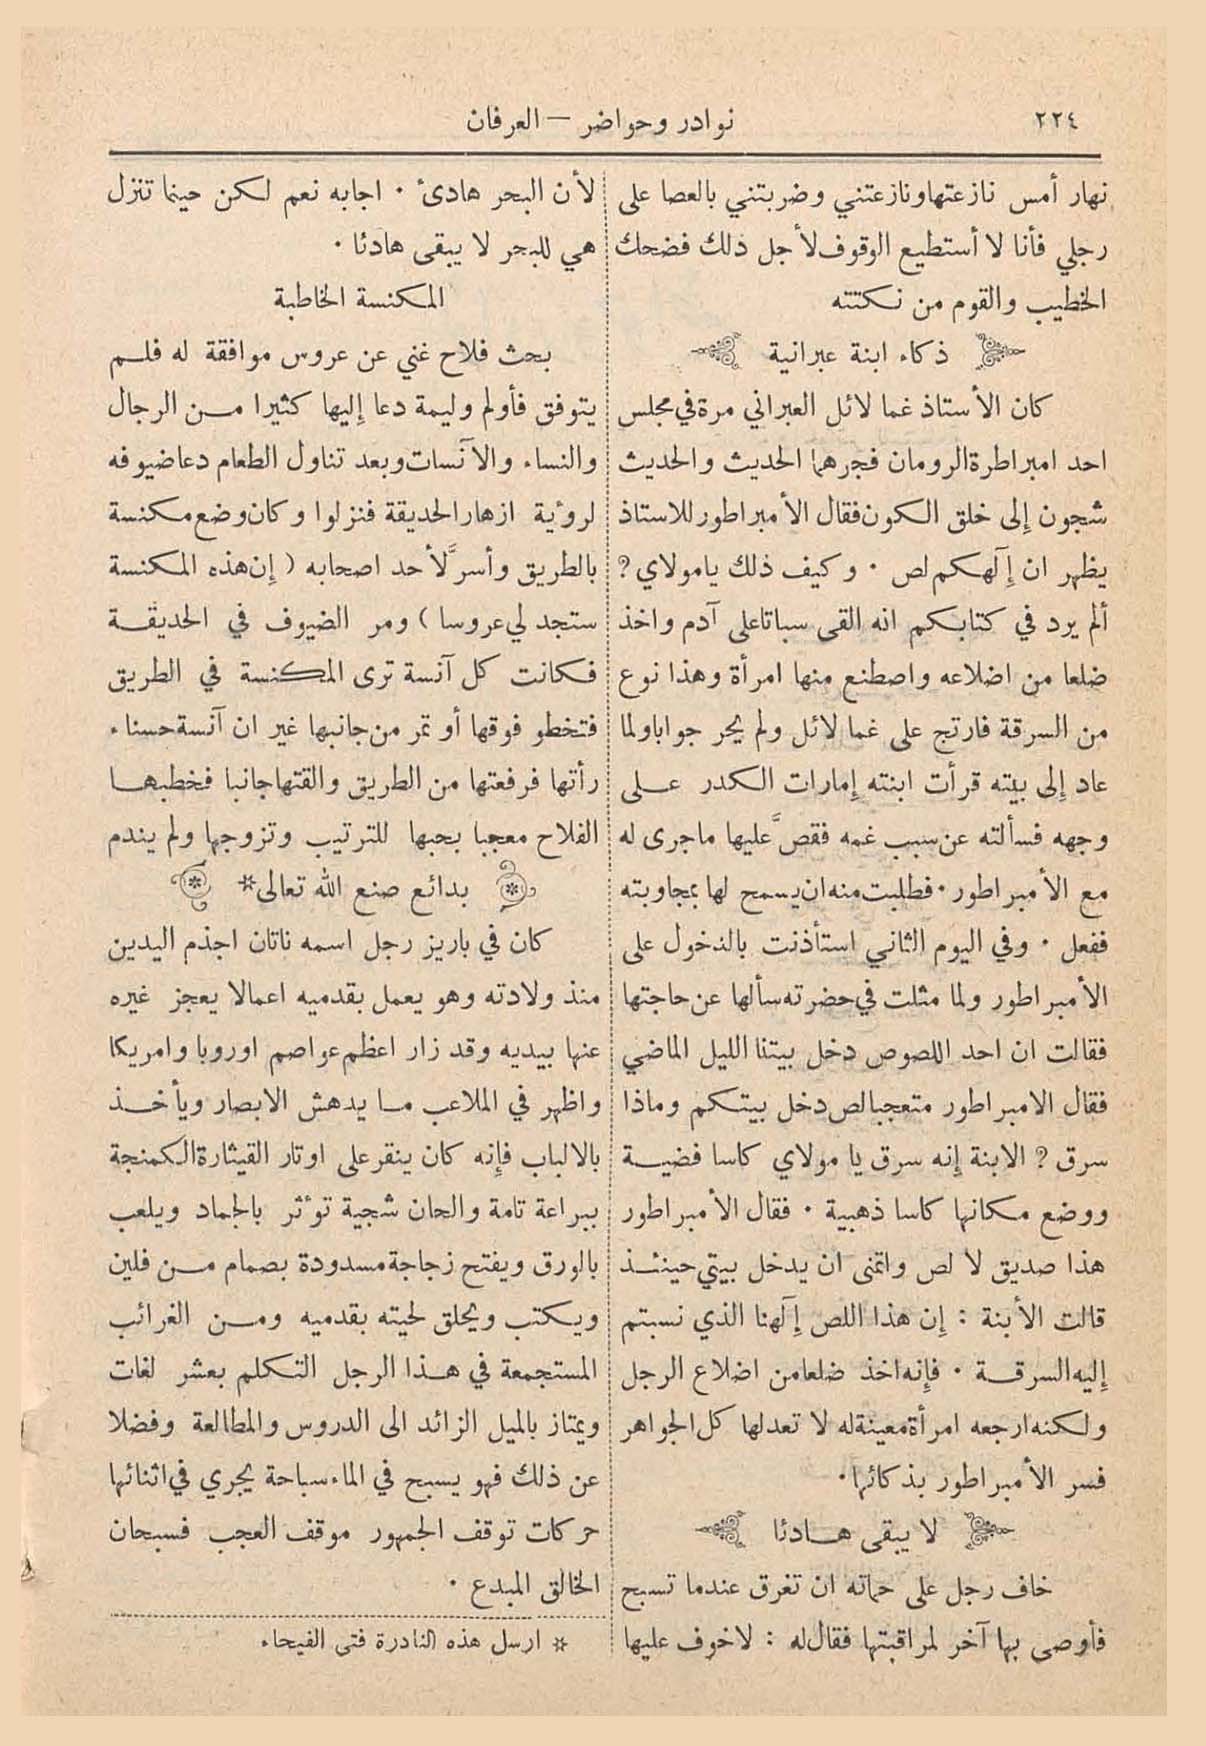 ٢٢٤
نوادر وحواضر — العرفان
نهار أمس نازعتها ونازعتني وضربتني بالعصا على
رجلي فأنا لا أستطيع الوقوف لأجل ذلك فضحك
الخطيب والقوم من نكتته
ذكاء ابنة عبرانية
كان الأستاذ غما لائل العبراني مرة في مجلس
احد امبراطرة الرومان فجرهما الحديث والحديث
شجون إلى خلق الكون فقال الأمبراطور للاستاذ
يظهر ان إلٓهكم لص ٠ وكيف ذلك يا مولاي ?
ألم يرد في كتابكم انه القى سباتا على آدم واخذ
ضلعا من اضلاعه واصطنع منها امرأة وهذا نوع
من السرقة فارتج على غما لائل ولم يحر جوابا ولما
عاد إلى بيته قرأت ابنته إمارات الكدر عــلى
وجهه فسألته عن سبب غمه فقصَّ عليها ما جرى له
مع الأمبراطور ٠ فطلبت منه ان يسمح لها بمجاوبته
ففعل ٠ وفي اليوم الثاني استأذنت بالدخول على
الأمبراطور ولما مثلت في حضرته سألها عن حاجتها
فقالت ان احد اللصوص دخل بيتنا الليل الماضي
فقال الامبراطور متعجبا لص دخل بيتكم وماذا
سرق ? الابنة إنه سرق يا مولاي كاسا فضيــة
ووضع مكانها كاسا ذهبية ٠ فقال الأمبراطور
هذا صديق لا لص واتمنى ان يدخل بيتي حينئــذ
قالت الأبنة : إن هذا اللص إلٓهنا الذي نسبتم
إليه السرقــة ٠ فإنه اخذ ضلعا من اضلاع الرجل
ولكنه ارجعه امرأة معينة له لا تعدلها كل الجواهر
فسر الأمبراطور بذكائها ٠
لا يبقى هــادئا
خاف رجل على حماته ان تغرق عندما تسبح
فأوصى بها آخر لمراقبتها فقال له : لا خوف عليها
لأن البحر هادئ ٠ اجابه نعم لكن حينما تنزل
هي للبحر لا يبقى هادئا ٠
المكنسة الخاطبة
بحث فلاح غني عن عروس موافقة له فلــم
يتوفق فأولم وليمة دعا إليها كثيرا مــن الرجال
والنساء والآنسات وبعد تناول الطعام دعا ضيوفه
لرؤية ازهار الحديقة فنزلوا وكان وضع مكنسة
بالطريق وأسرَّ لأحد اصحابه ( إن هذه المكنسة
ستجد لي عروسا ) ومر الضيوف في الحديقــة
فكانت كل آنسة ترى المكنسة في الطريق
فتخطو فوقها أو تمر من جانبها غير ان آنسة حسناء
رأتها فرفعتها من الطريق والقتها جانبا فخطبهــا
الفلاح معجبا بحبها للترتيب وتزوجها ولم يندم
بدائع صنع الله تعالى *
كان في باريز رجل اسمه ناتان اجذم اليدين
منذ ولادته وهو يعمل بقدميه اعمالا يعجز غيره
عنها بيديه وقد زار اعظم عواصم اوروبا وامريكا
واظهر في الملاعب مــا يدهش الابصار ويأخــذ
بالالباب فإنه كان ينقر على اوتار القيثارة الكمنجة
ببراعة تامة والحان شجية تؤثر بالجماد ويلعب
بالورق ويفتح زجاجة مسدودة بصمام مــن فلين
ويكتب ويحلق لحيته بقدميه ومــن الغرائب
المستجمعة في هــذا الرجل التكلم بعشر لغات
ويمتاز بالميل الزائد الى الدروس والمطالعة وفضلا
عن ذلك فهو يسبح في الماء سباحة يجري في اثنائها
حركات توقف الجمهور موقف العجب فسبحان
الخالق المبدع ٠
* ارسل هذه النادرة فتى الفيحاء